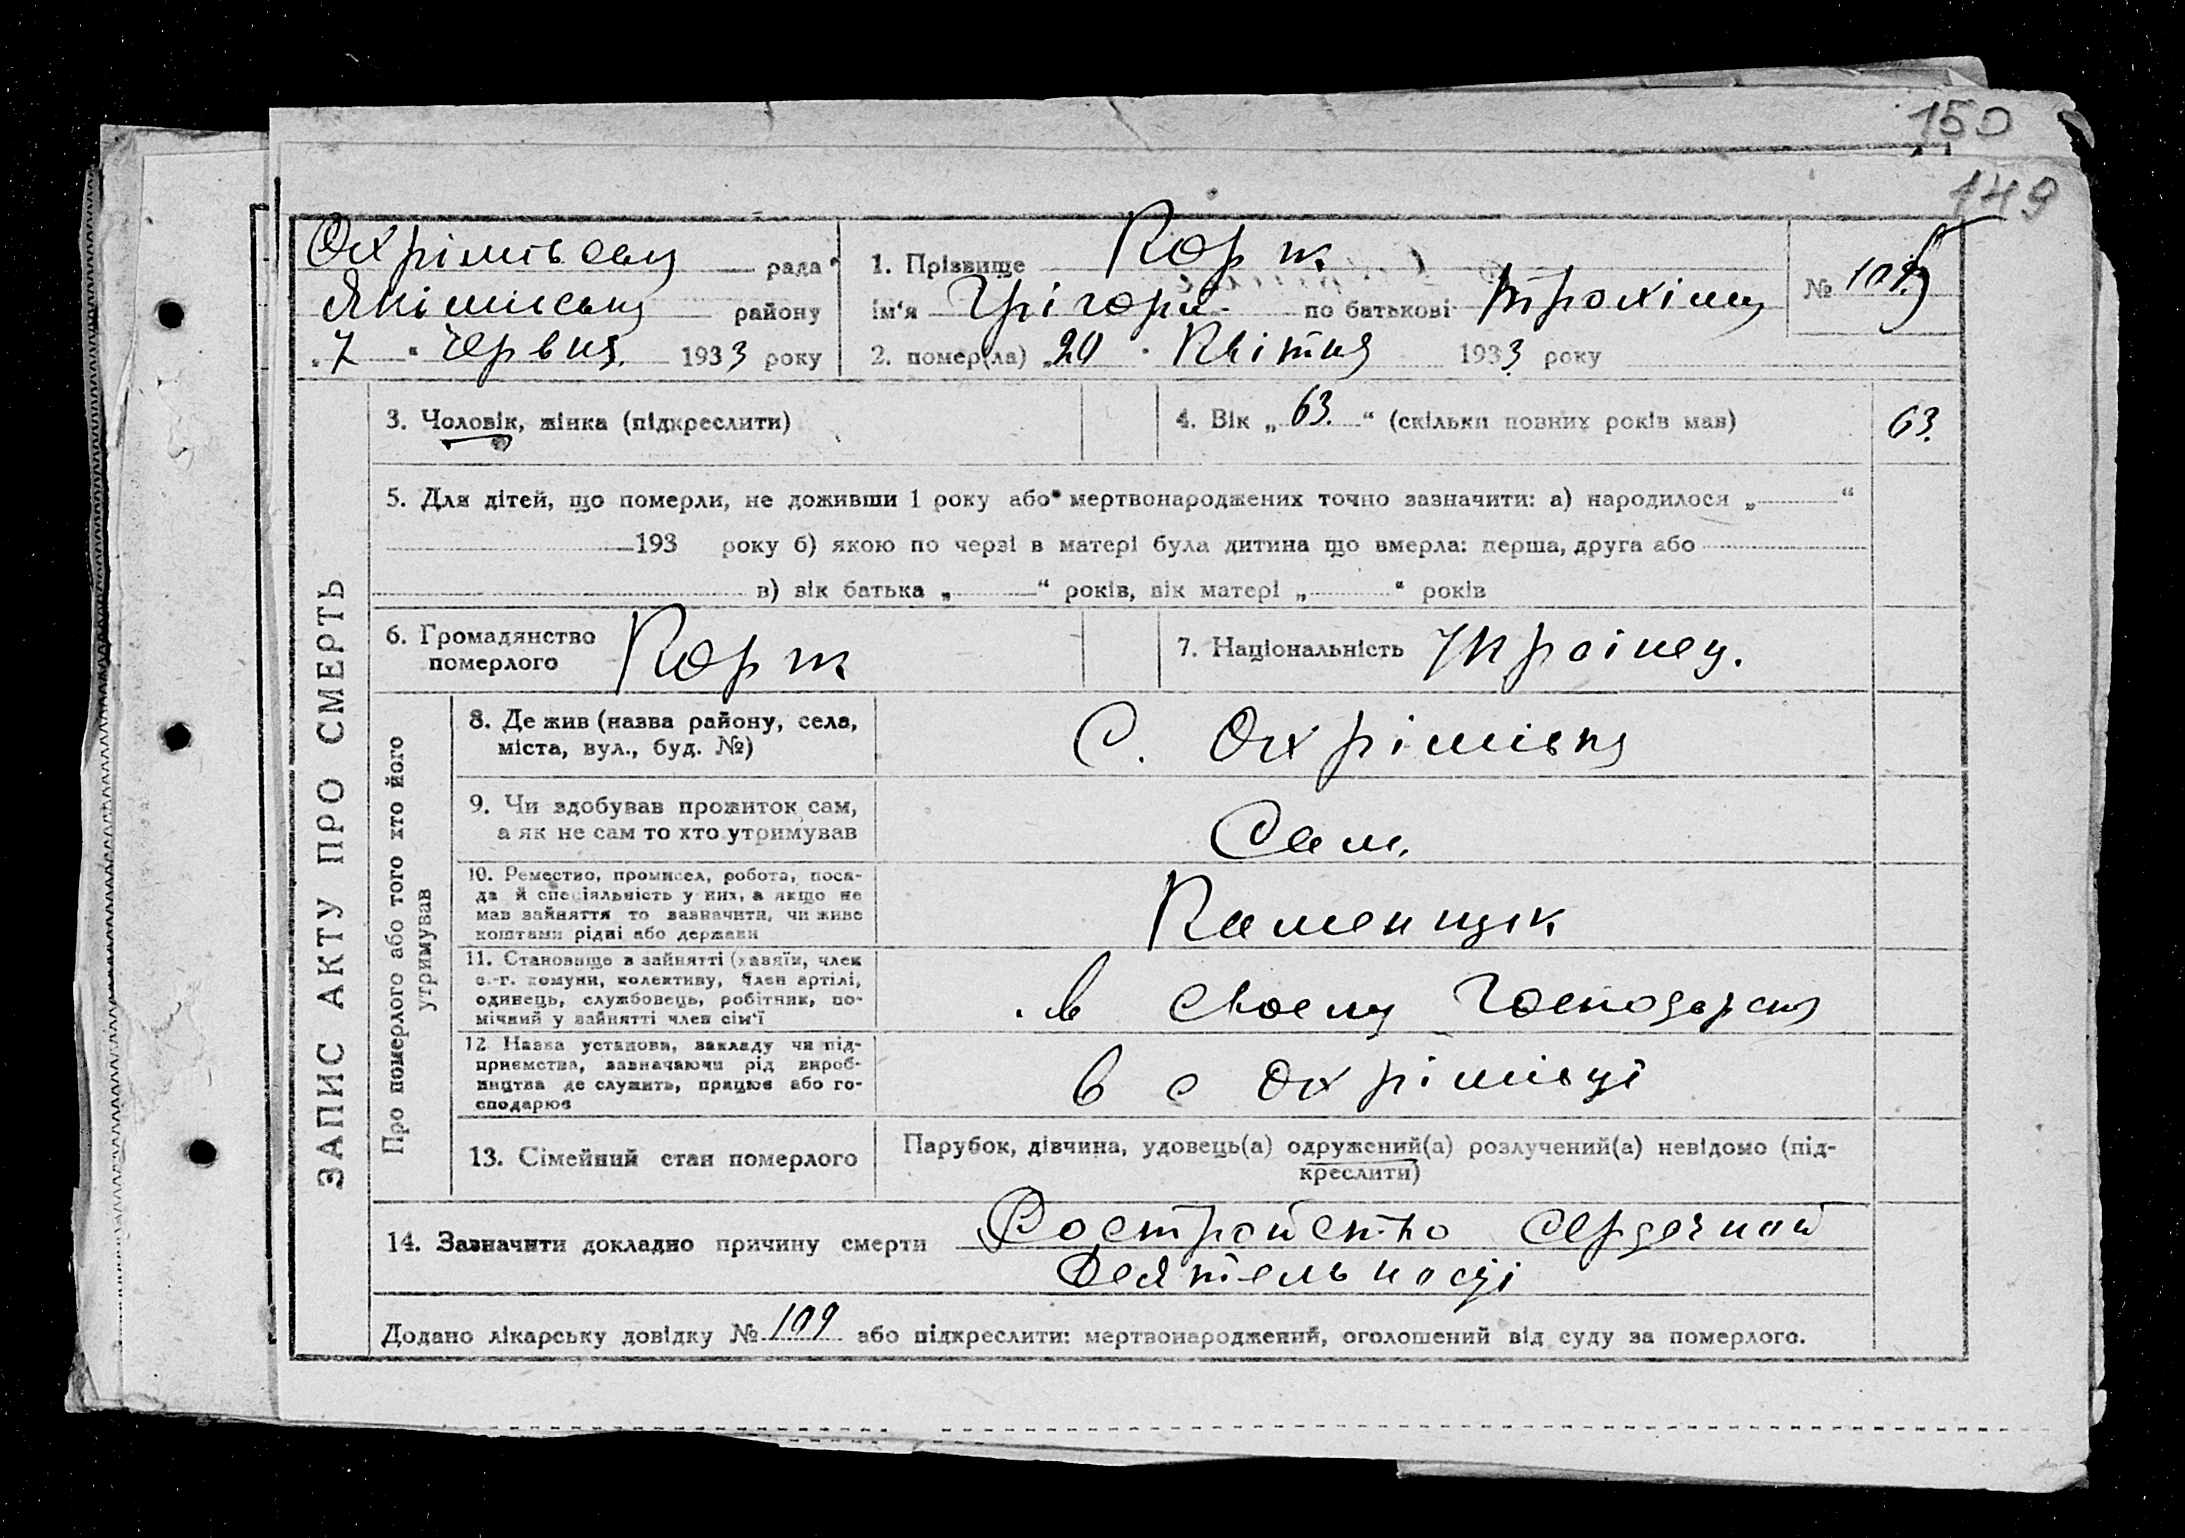 150
149
Охрімівську рада
Якімівську району
„ 7 " Червня 1933 року
1. Прізвище Корж
ім'я Грігорій по батькові Трохімц
2. помер(ла) 20 Квітня 1933 року
№ 109
ЗАПИС АКТУ ПРО СМЕРТЬ
3. Чоловік, жінка (підкреслити)
4. Вік „ 63. " (скільки повних років мав)
63.
5. Для дітей, що померли, не доживши 1 року або мертвонароджених точно зазначити: а) народилося „ "
193 року б) якою по черзі в матері була дитина що вмерла: перша, друга або
в) вік батька „ " років, вік матері „ " років
6. Громадянство
померлого Корж
7. Національність Украінец.
Про померлого або того хто його
утримував
8. Де жив (назва району, села,
міста, вул., буд. №)
С. Охрімівка
9. Чи здобував прожиток сам,
а як не сам то хто утримував
Сам.
10. Ремество, промисел, робота, поса-
да й спеціяльність у них, а якщо не
мав зайняття то зазначити, чи живе
коштами рідні або держави
Каменщік
11. Становище в зайнятті (хазяїн, член
с.-г. комуни, колективу, член артілі,
одинець, службовець, робітник, по-
мічний у зайнятті член сім'ї
в своему Господарстві
12 Назва установи, закладу чи під-
приємства, зазначаючи рід вироб-
ництва де служить, працює або го-
сподарює
в с Охрімівці
13. Сімейний стан померлого
Парубок, дівчина, удовець(а) одружений(а) розлучений(а) невідомо (під-
креслити)
14. Зазначити докладно причину смерти Состройство сердечной
Деятельносці
Додано лікарську довідку № 109 або підкреслити: мертвонароджений, оголошений від суду за померлого.